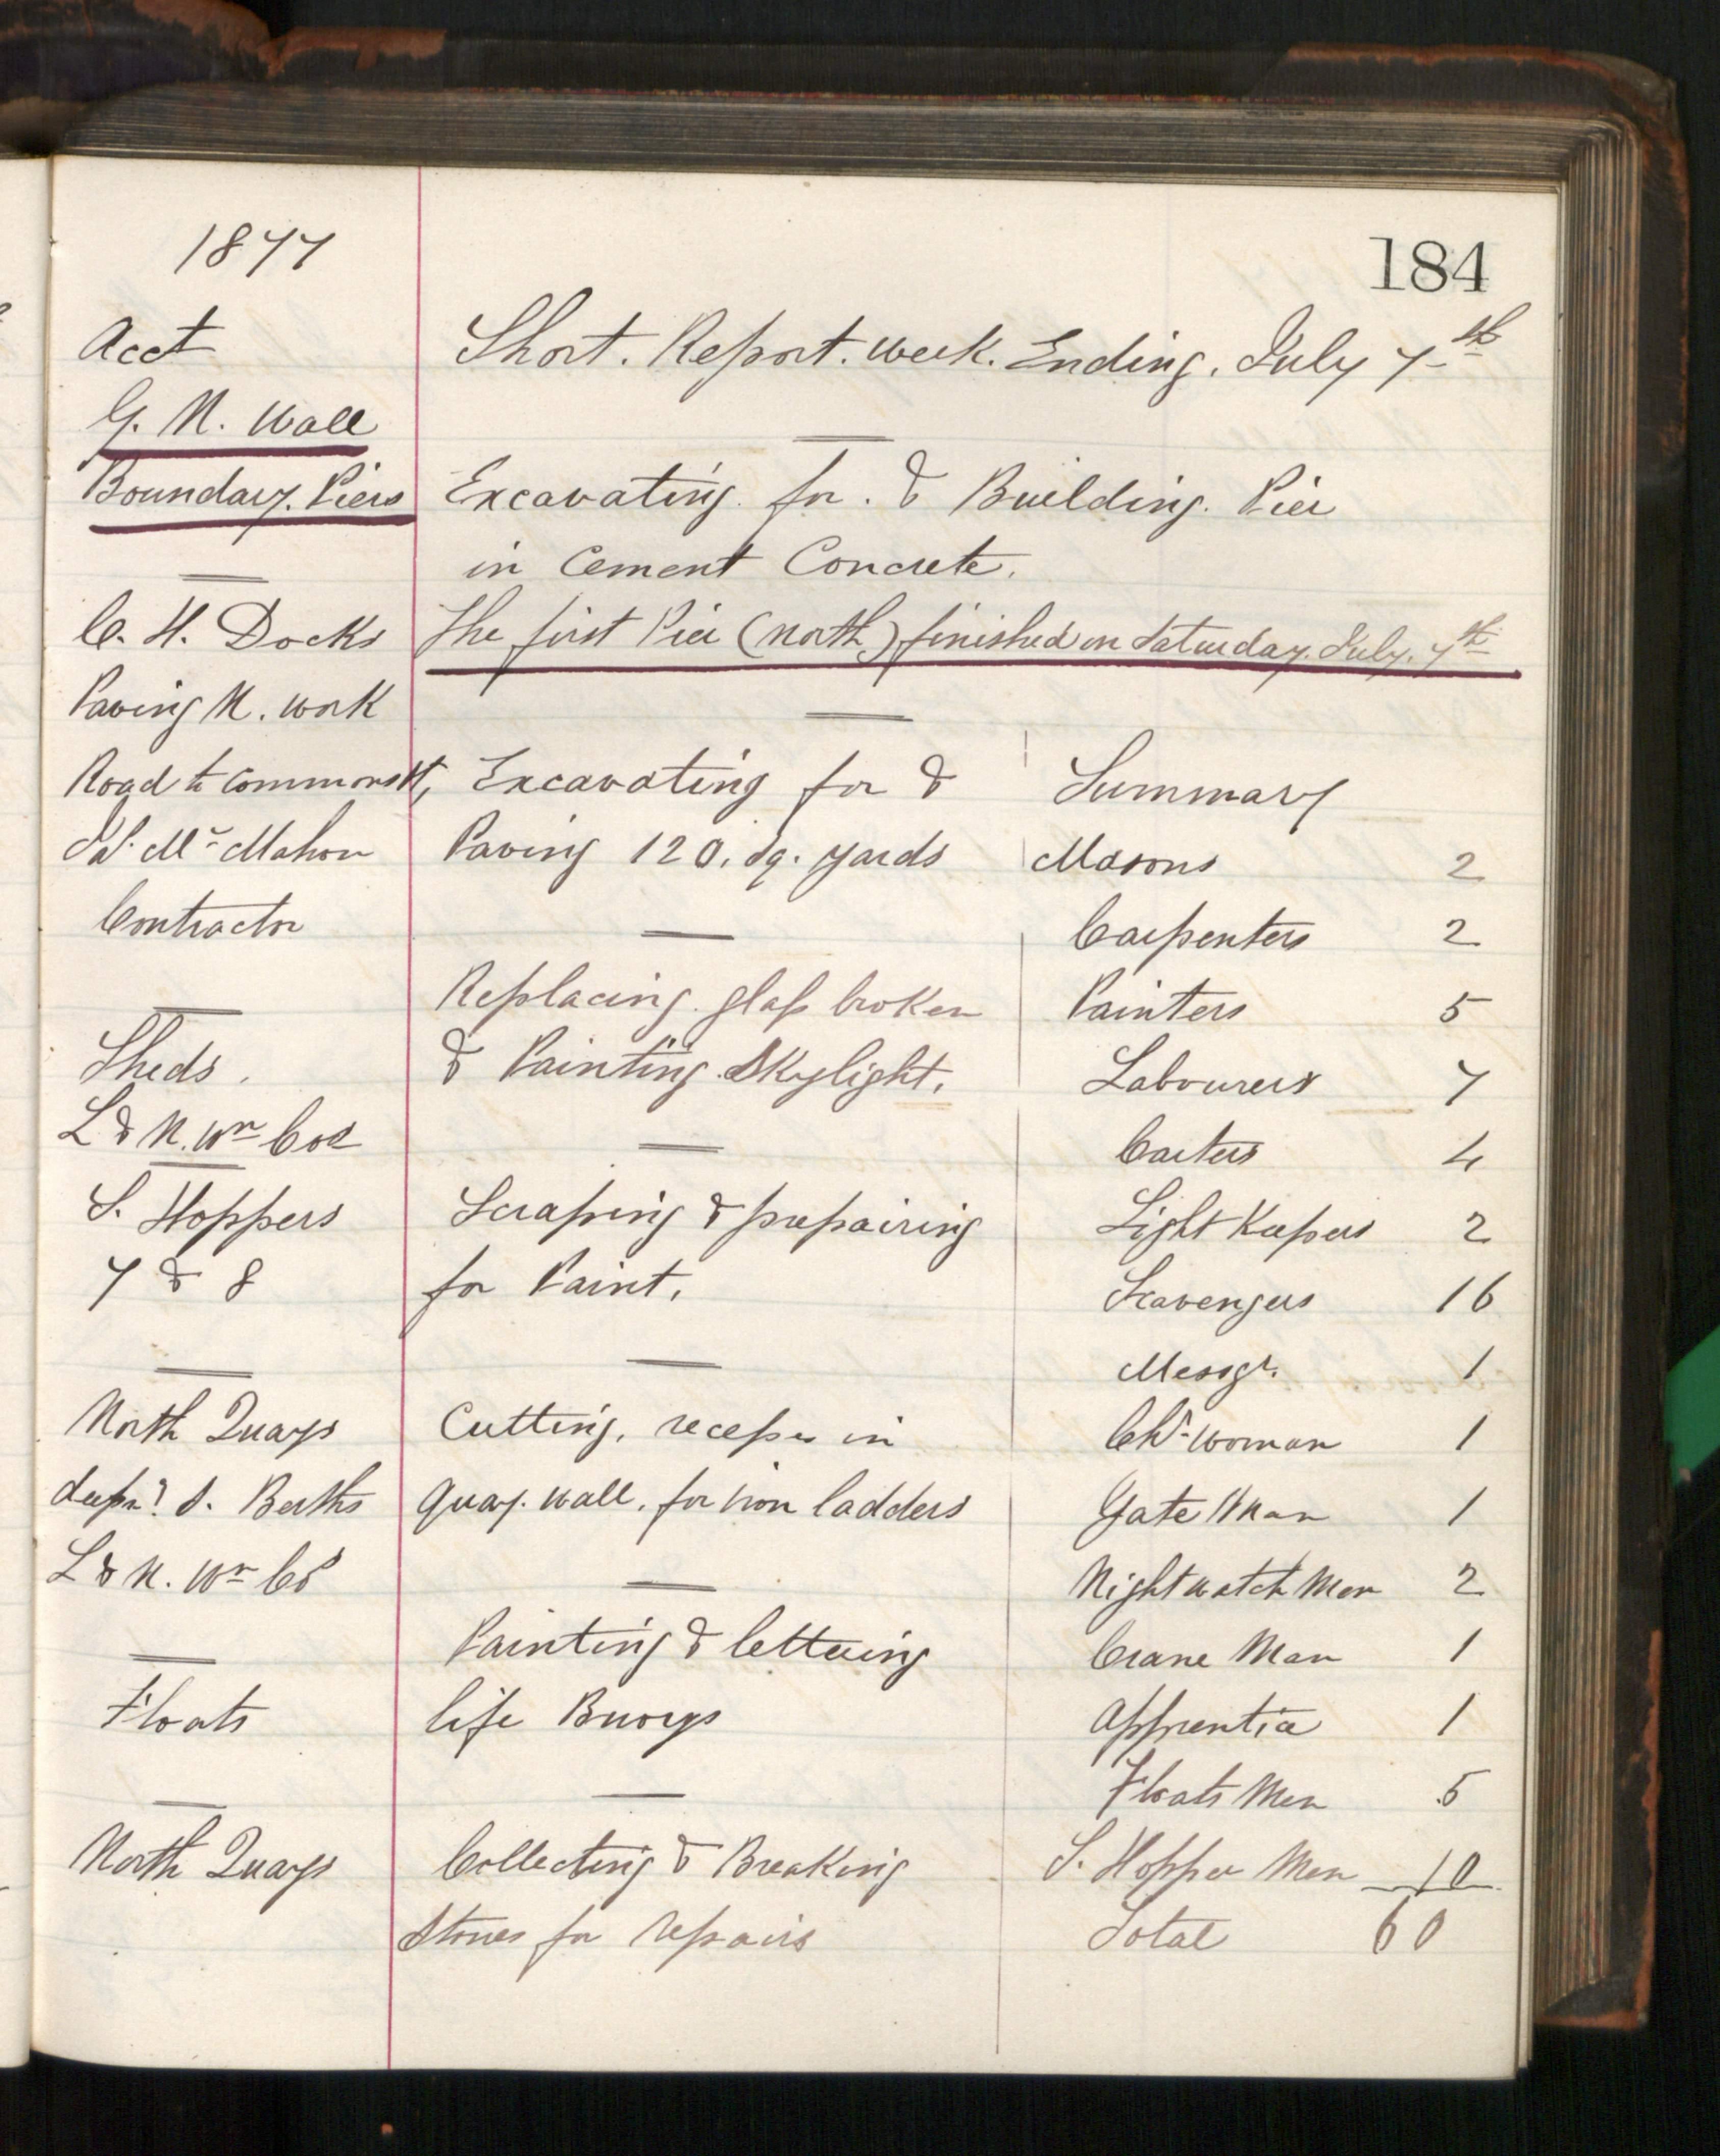 1877
184
Acct
Short. Report. week. Ending. July 7th
G. N. Wall
Boundary. Piers
Excavating. for. & Building. Pier
in Cement Concrete.
The first Pier (North) finished on Saturday. July. 7th
C. H. Docks
Paving N. work
Road to Commons St,
Pat. Mc Mahon
Contractor
Excavating for &
Paving 120. sq. yards
Sheds.
L & N. Wn Coe
Replacing. glass broken
& Painting. Skylight.
S. Hoppers
7 & 8
Scraping & prepairing
for Paint.
North Quays
deepnd S. Berths
L & N. Wn Co
Cutting. recesses in
Quay. wall. for iron ladders
Floats
Painting & lettering
life Buoys
North Quays
Collecting & Breaking
Stones for repairs
Summary
Masons 2
Carpenters 2
Painters 5
Labourers 7
Carters 4
Light Keepers 2
Scavengers 16
Messgr. 1
Chr-woman 1
Gate Man 1
Night watch Men 2
Crane Man 1
Apprentice 1
Floats Men 5
S. Hopper Men 10
Total 60